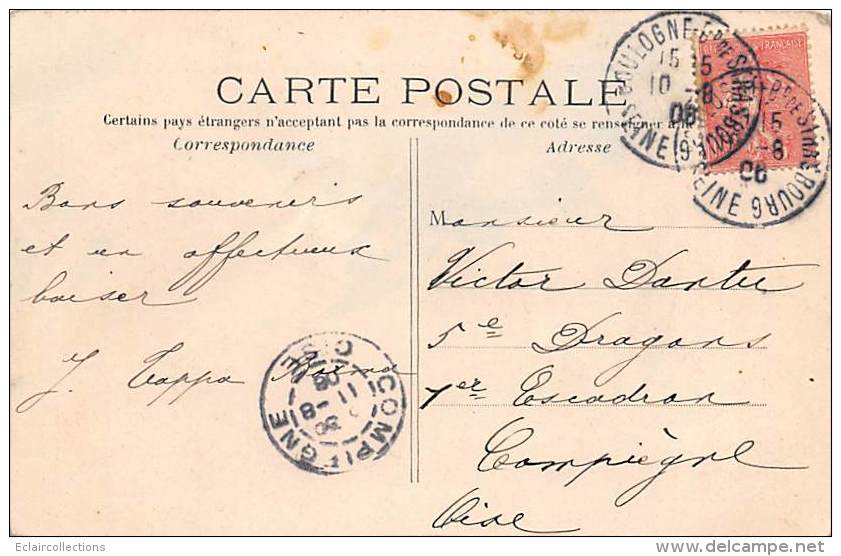 CARTE POSTALE
Certains pays étrangers n'acceptant pas la correspondance de ce coté se renseigner à
Correspondance
Adresse
Bons souvenirs
et un affectueux
baiser
J.
Monsieur
Victor
5e Dragons
1er Escadron
Compiègne
Oise
BOULOGNE Bd DE STRASBOURG
15
10 -8
06
(SEINE)
Bd DE STRASBOURG
15
-8
06
SEINE
COMPIEGNE
OISE
11 -8
06
FRANÇAISE
Eclaircollections
delcampe.net